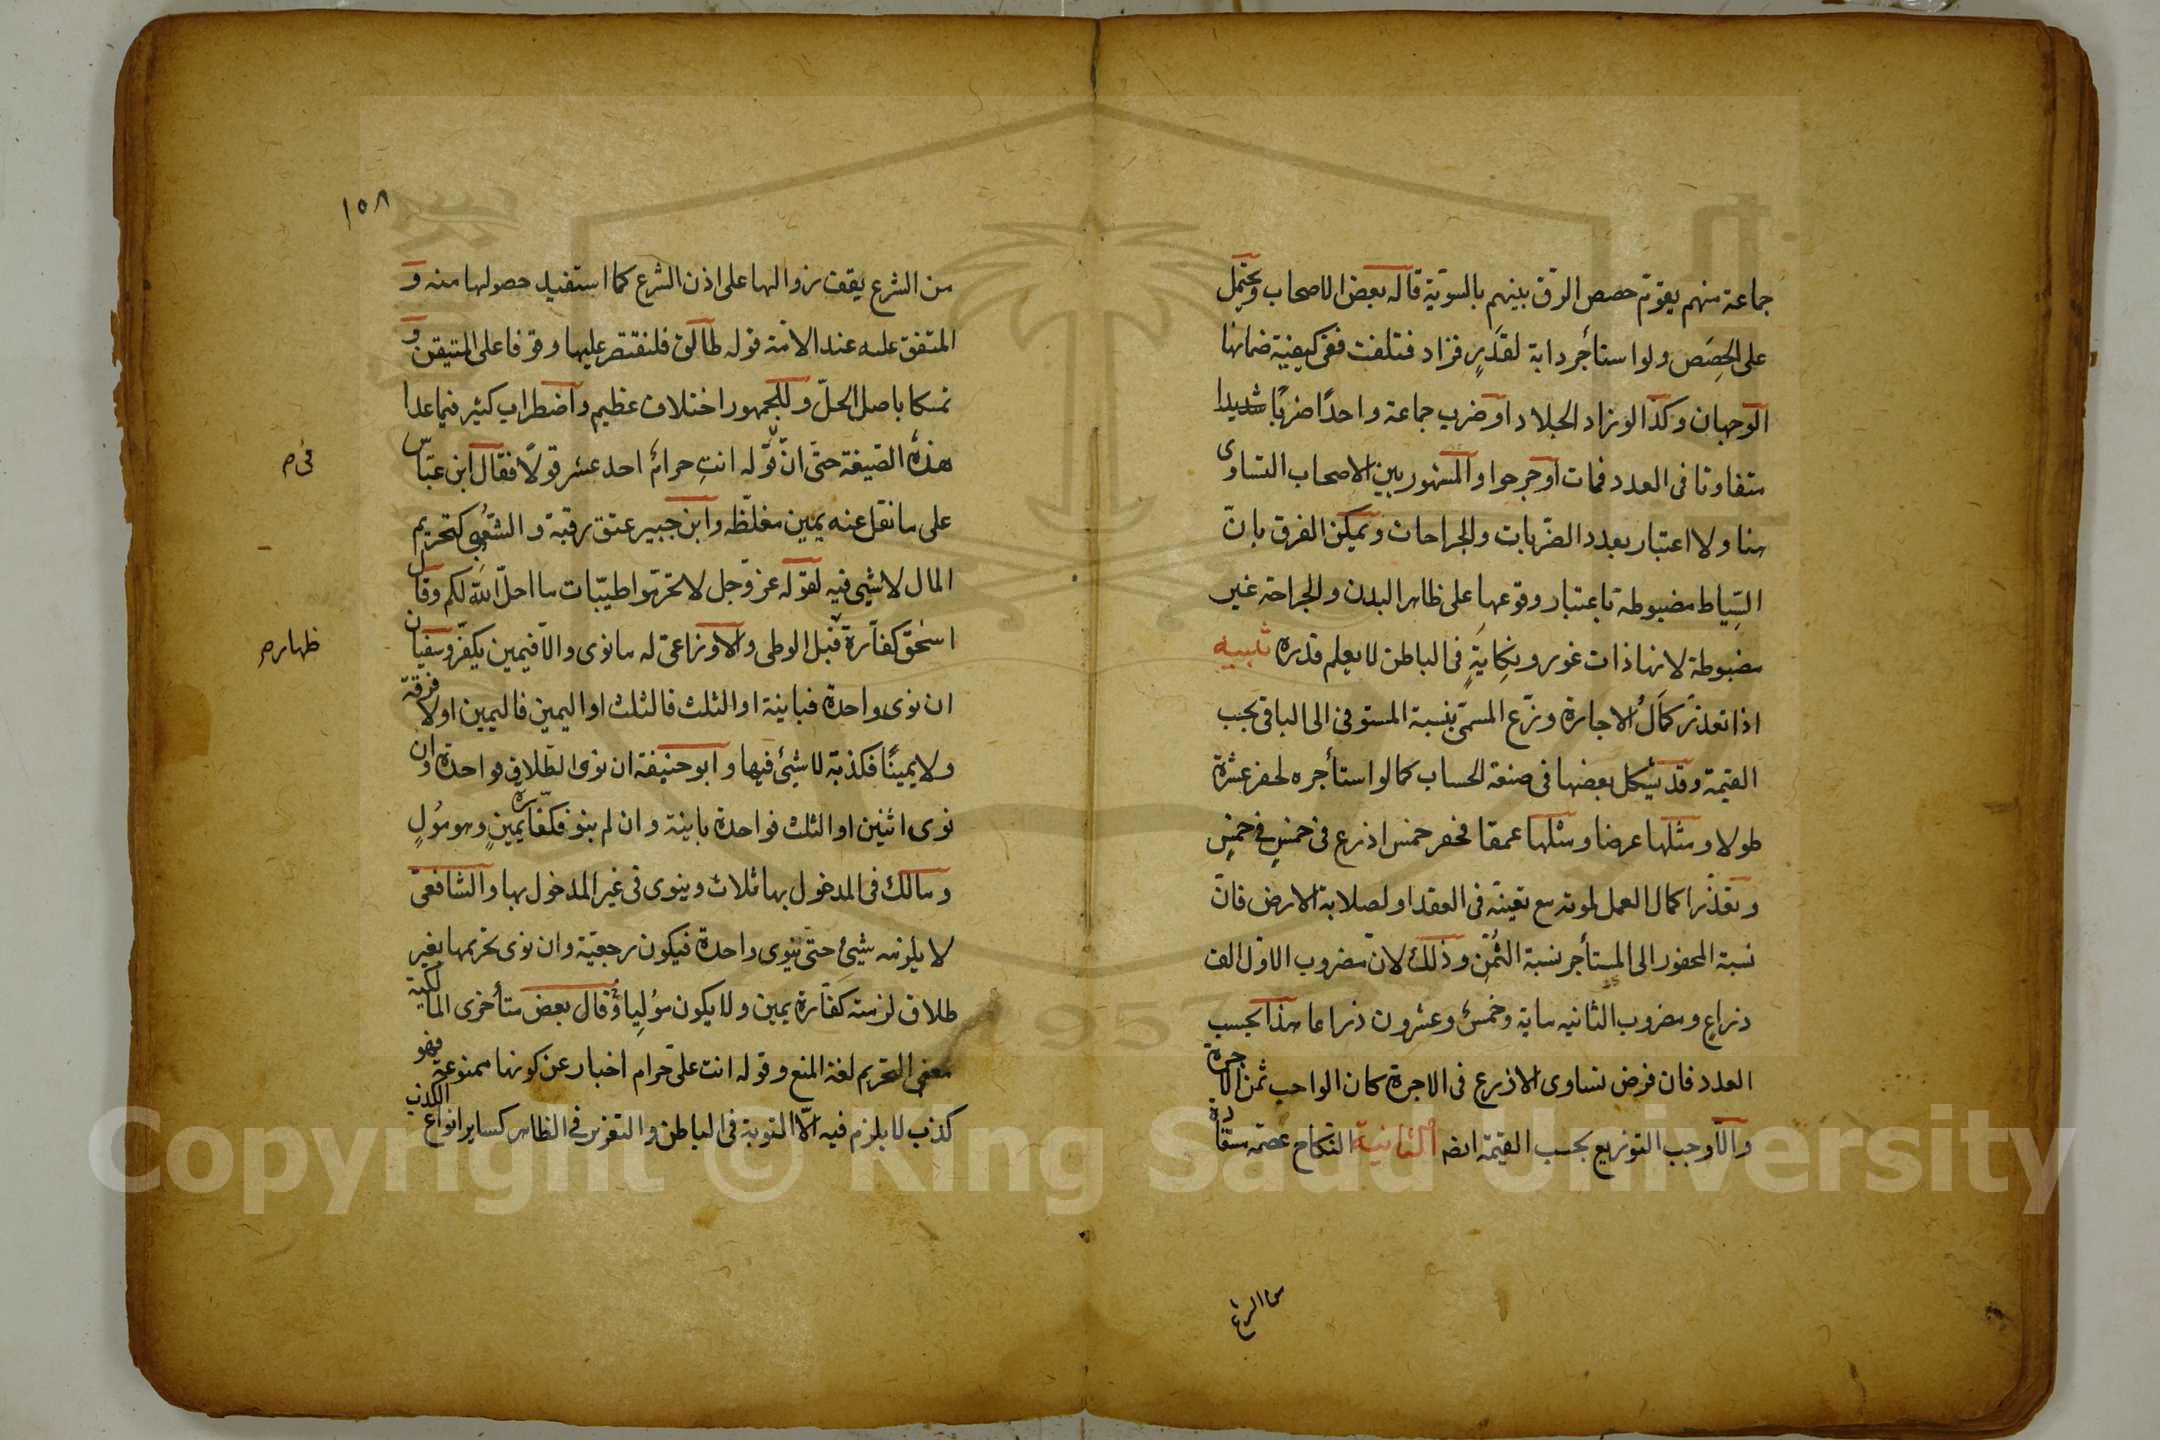 جماعة منهم يقوّم حصص الرق بينهم بالسوّية قاله بعض الاصحاب ويحتمل
على الحِصَص ولو استأجر دابة لقدَرٍ فزاد فتلفت ففي كيفية ضمانها
الوجهان وكذا لو زاد الجلاد او ضرب جماعة واحدًا ضربًا شديدا
متفاوتا في العدد فمات او جرحوا والمشهور بين الاصحاب التساوى
هنا ولا اعتبار بعدد الضربات والجراحات ويمكن الفرق بانّ
السِياط مضبوطة باعتبار وقوعها على ظاهر البدن والجراحة غير
مضبوطة لانها ذات غور ونِكايَةٍ في الباطن لا يعلم قدره تنبيه
اذا تعذّر كمَالُ الاجارة وزّع المسمّى بنسبة المستوفى الى الباقى بحسب
القيمة وقد يشكل بعضها في صنعة الحساب كما لو استأجره لحفر عشرة
طولا ومثلها عرضا ومثلها عمقا فحفر خمس اذرع في خمسٍ في خمسٍ
وتعذّر اكمال العمل لموته مع تعينّه في العقد او لصلابة الارض فانّ
نسبة المحفور الى المستأجر نسبة الثُمن وذلك لانّ مضروب الاوّل الف
ذراع ومضروب الثانيه ماية وخمسٌ وعشرون ذراعا هذا بحسب
العدد فان فرض تساوى الاذرع في الاجرة كان الواجب ثمن الاجرة
والّا وجب التوزيع بحسب القيمة ايضا الثانية النكاح عصمة مستفادة
من الشرع
١٥٨
من الشرع يقف زوالها على اذن الشرع كما استفيد حصولها منه و
المتفق عليه عند الامّة قوله طالق فلنقتصر عليها وقوفا على المتيقن و
تمسكا باصل الحلّ وللجمهور اختلاف عظيم واضطراب كثير فيما عدا
هذه الصيغة حتى انّ قوله انتِ حرامٌ احد عشر قولًا فقال ابن عبّاس
في م
على ما نقل عنه يمين مغلّظه وابن جبير عتق رقبة والشعبي كتحريم
المال لا شيئ فيه لقوله عز وجل لا تحرّموا طيّبات ما احلّ الله لكم وقال
اسحٰق كفارة قبل الوطى والاوزاعىّ له ما نوى والّا فيمين يكفّر وسفيان
ظهار م
ان نوى واحدة فباينة او الثلث فالثلث او اليمين فاليمين اولا فرقة
ولا يمينًا فكذبة لا شيئ فيها وابو حنيفة ان نوى الطّلاق فواحدة وان
نوى اثنين او الثلث فواحدة باينة وان لم ينو فكفّارة يمينٍ وهو مُولٍ
ومالك في المدخول بها ثلاث وينوى في غير المدخول بها والشافعىّ
لا يلزمه شيئ حتى ينوى واحدة فيكون رجعيّة وان نوى تحريمها بغير
طلاق لزمته كفارة يمين ولا يكون مُولِيا وقال بعض متأخرى المالكية
معنى التحريم لغة المنع وقوله انت علىّ حرام اخبار عن كونها ممنوعة فهو
كذب لا يلزم فيه الّا التوبة في الباطن والتعزير في الظاهر كساير انواع الكذب
Copyright © King Saud University